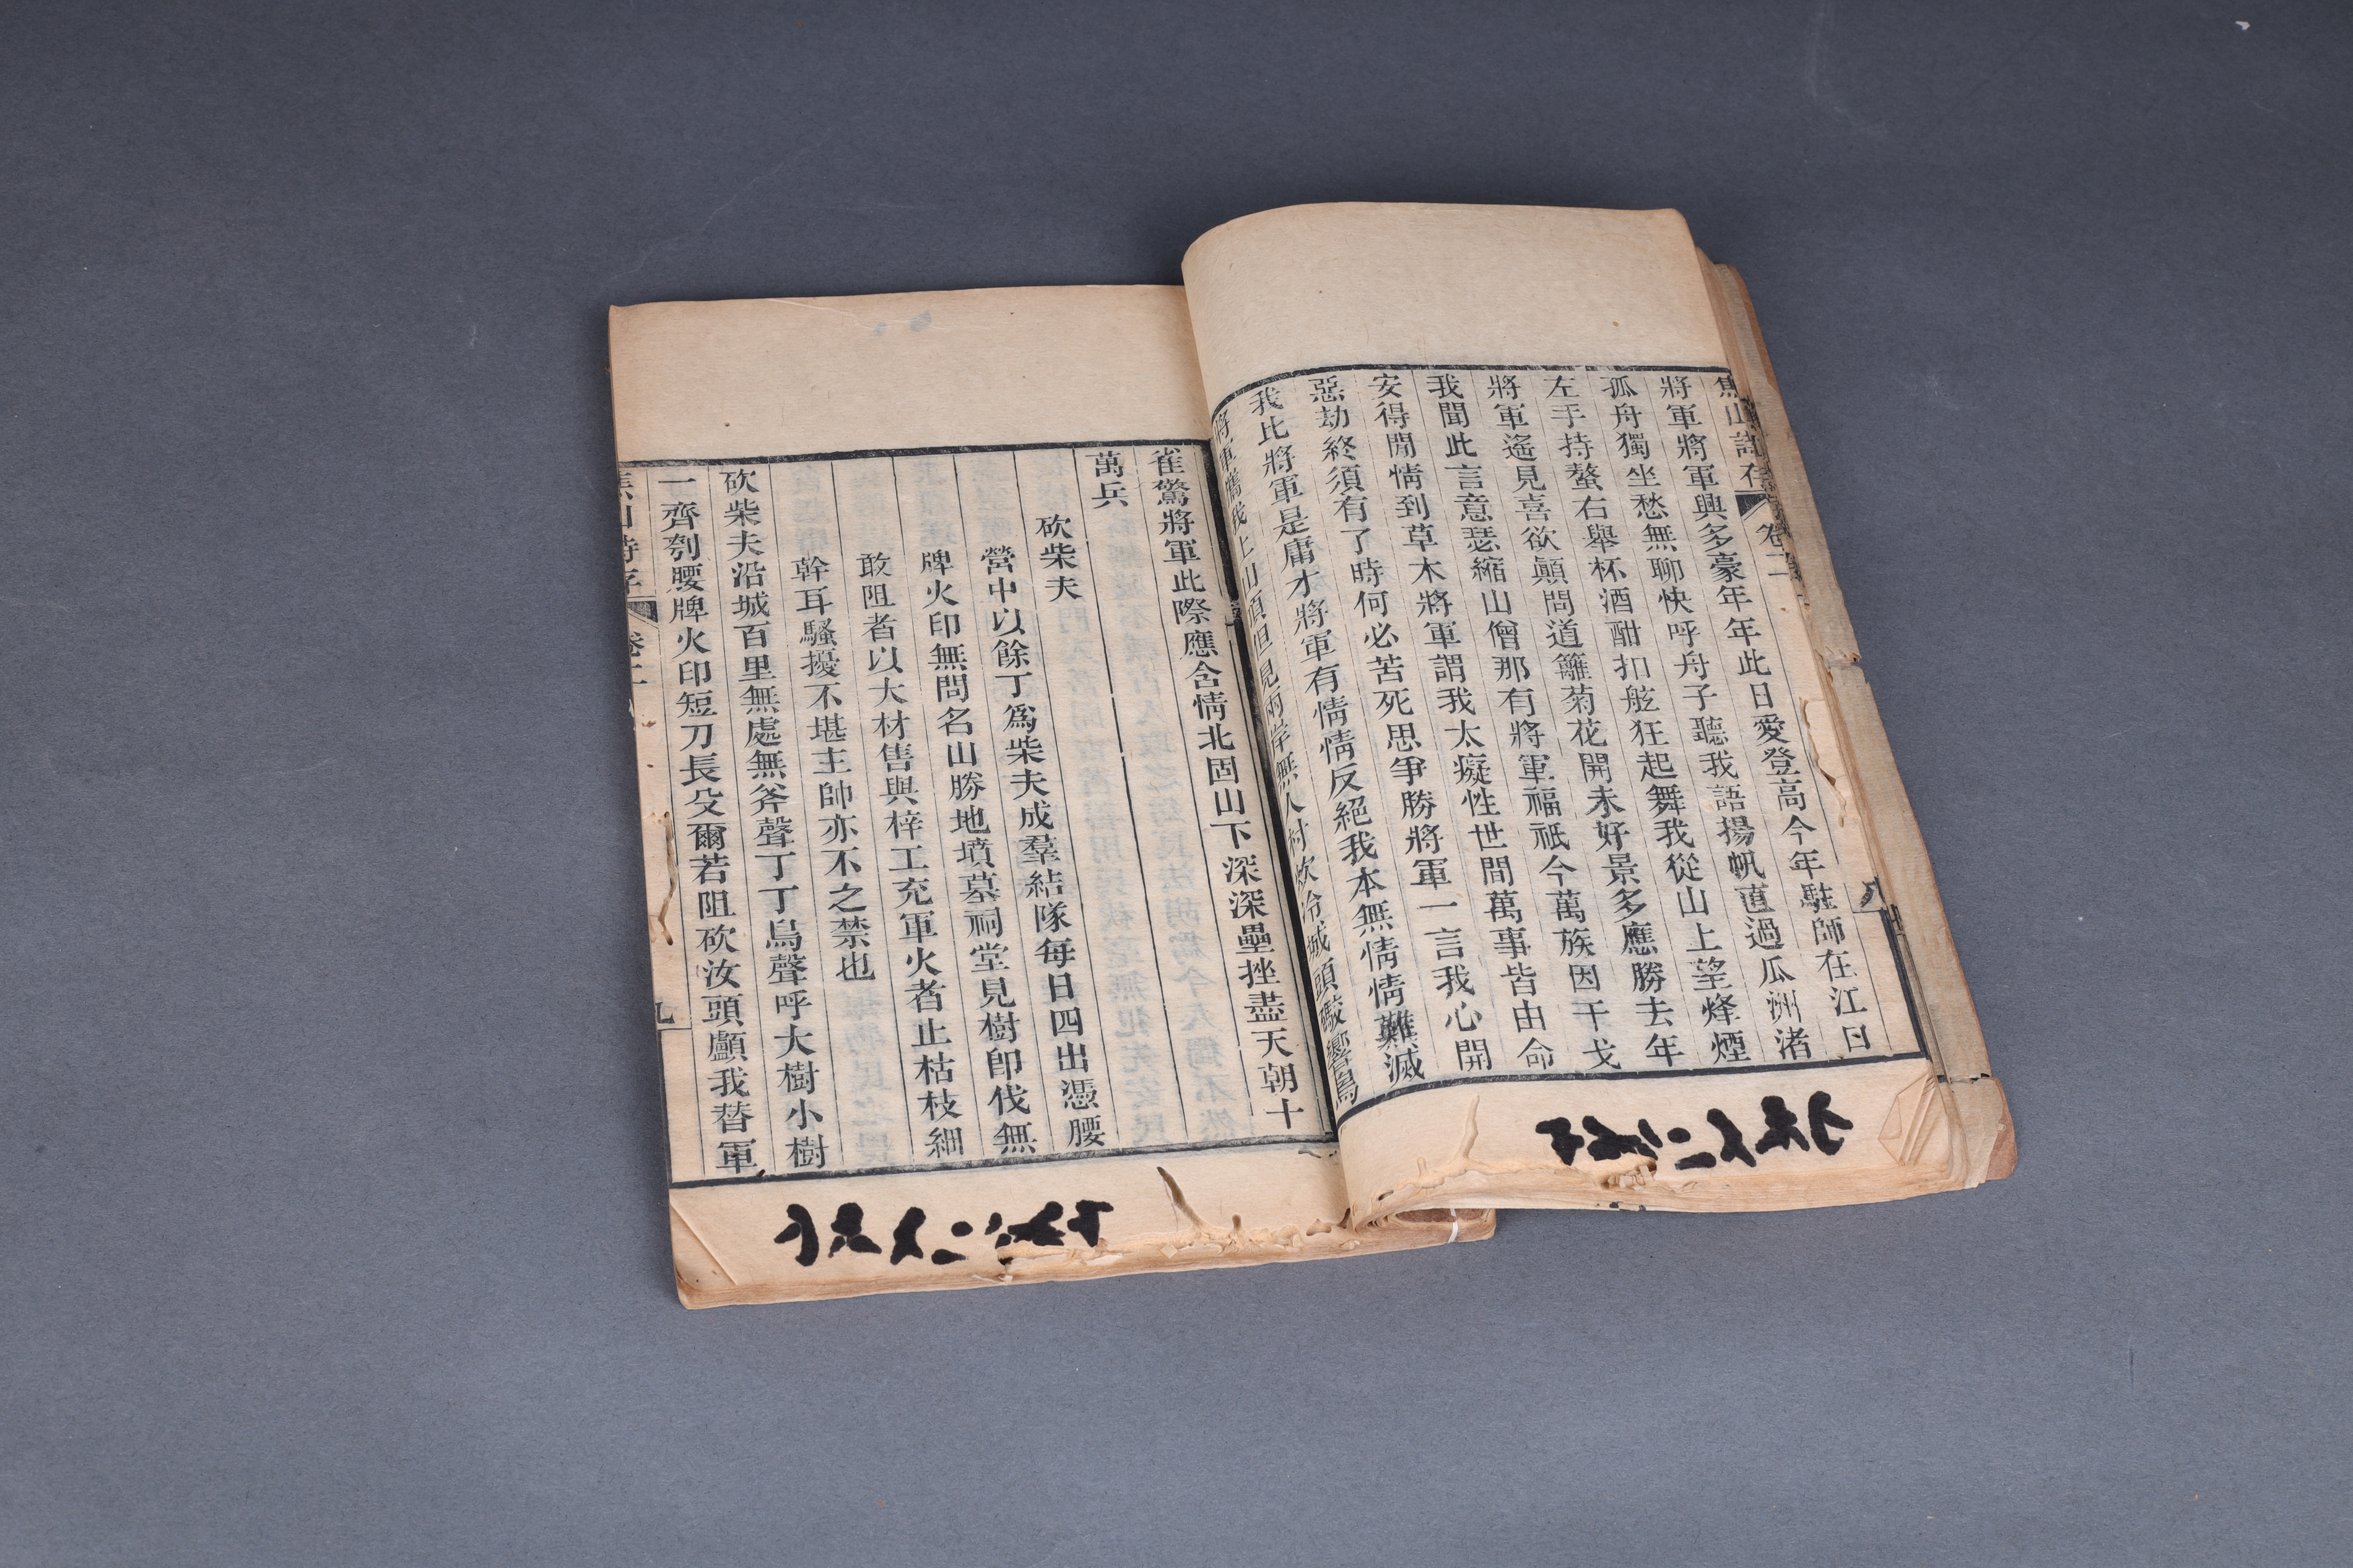 焦山詩存 卷二 八
將軍將軍興多豪年年此日愛登高今年駐師在江日
孤舟獨坐愁無聊快呼舟子聽我語揚帆直過瓜洲渚
左手持螯右舉杯酒酣扣舷狂起舞我從山上望烽煙
將軍遙見喜欲顛問道籬菊花開未好景多應勝去年
我聞此言意瑟縮山僧那有將軍福祇今萬族因干戈
安得閒情到草木將軍謂我太癡性世間萬事皆由命
惡劫終須有了時何必苦死思爭勝將軍一言我心開
我比將軍是庸才將軍有情情反絕我本無情情難滅
將軍舊我上山頂但見兩岸無人村炊冷城頭礮響鳥
雀驚將軍此際應含情北固山下深深壘挫盡天朝十
萬兵
砍柴夫
營中以餘丁爲柴夫成羣結隊每日四出憑腰
牌火印無問名山勝地墳墓祠堂見樹卽伐無
敢阻者以大材售與梓工充軍火者止枯枝細
幹耳騷擾不堪主帥亦不之禁也
砍柴夫沿城百里無處無斧聲丁丁鳥聲呼大樹小樹
一齊刳腰牌火印短刀長殳爾若阻砍汝頭顱我替軍
焦山詩存 卷二 九